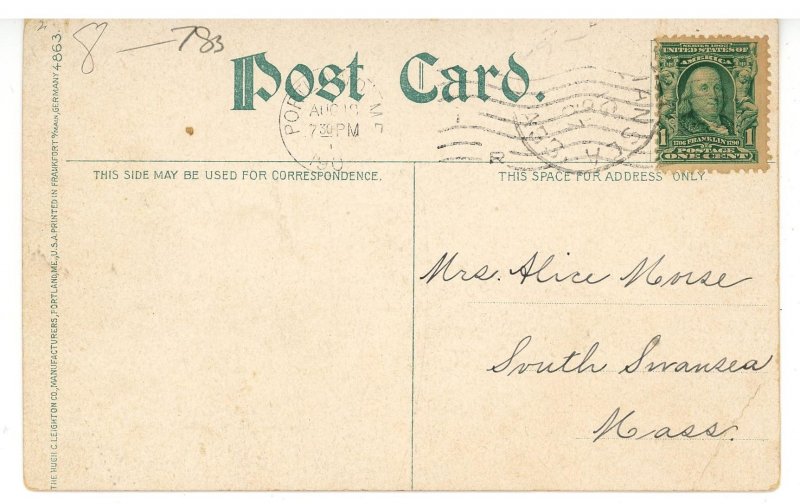 8 — 783
Post Card.
PORT ME
AUG 19
7 30 PM
190
R
SERIES 1902
UNITED STATES OF
AMERICA
1 1706 FRANKLIN 1790 1
POSTAGE
ONE CENT
THIS SIDE MAY BE USED FOR CORRESPONDENCE.
THIS SPACE FOR ADDRESS ONLY.
Mrs. Alice Morse
South Swansea
Mass.
THE HUGH C. LEIGHTON CO., MANUFACTURERS, PORTLAND, ME., U.S.A. PRINTED IN FRANKFORT O/MAIN, GERMANY 4863.